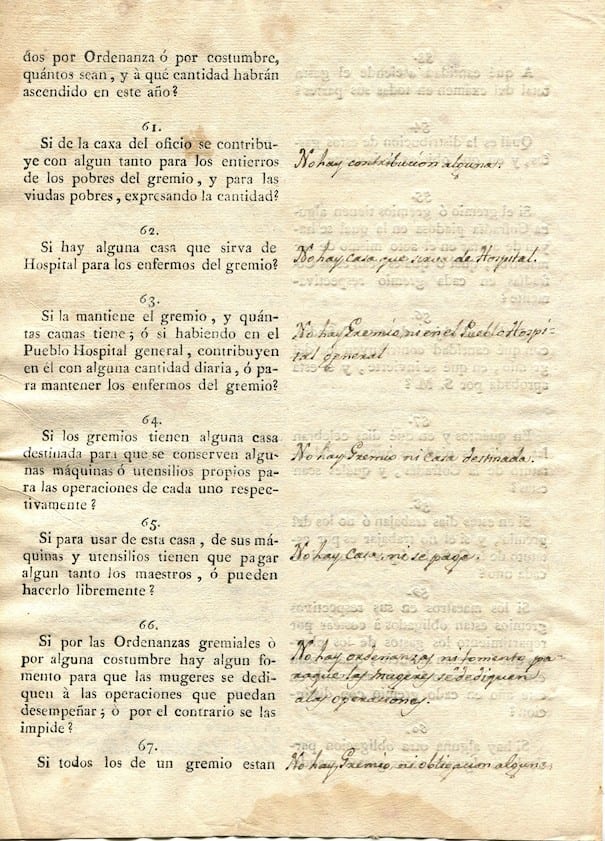 dos por Ordenanza ó por costumbre,
quántos sean, y à qué cantidad habrán
ascendido en este año?
61.
Si de la caxa del oficio se contribu-
ye con algun tanto para los entierros
de los pobres del gremio, y para las
viudas pobres, expresando la cantidad?
No hay contribucion alguna.
62.
Si hay alguna casa que sirva de
Hospital para los enfermos del gremio?
No hay Casa que sirva de Hospital.
63.
Si la mantiene el gremio, y quán-
tas camas tiene; ó si habiendo en el
Pueblo Hospital general, contribuyen
en él con alguna cantidad diaria, ó pa-
ra mantener los enfermos del gremio?
No hay Gremio, ni en el Pueblo Hospi-
tal general
64.
Si los gremios tienen alguna casa
destinada para que se conserven algu-
nas máquinas ó utensilios propios pa-
ra las operaciones de cada uno respec-
tivamente?
No hay Gremio ni casa destinada.
65.
Si para usar de esta casa, de sus má-
quinas y utensilios tienen que pagar
algun tanto los maestros, ó pueden
hacerlo libremente?
No hay Casa, ni se paga.
66.
Si por las Ordenanzas gremiales ò
por alguna costumbre hay algun fo-
mento para que las mugeres se dedi-
quen à las operaciones que puedan
desempeñar; ò por el contrario se las
impide?
No hay ordenanzas ni fomento pa-
raque las mugeres se dediquen
alas operaciones.
67.
Si todos los de un gremio estan
No hay Gremio, ni obligacion alguna.